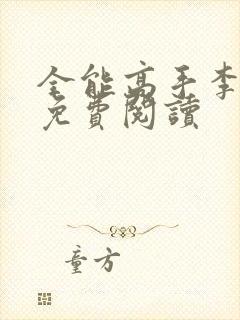 全能高手李
免費閱讀
童方